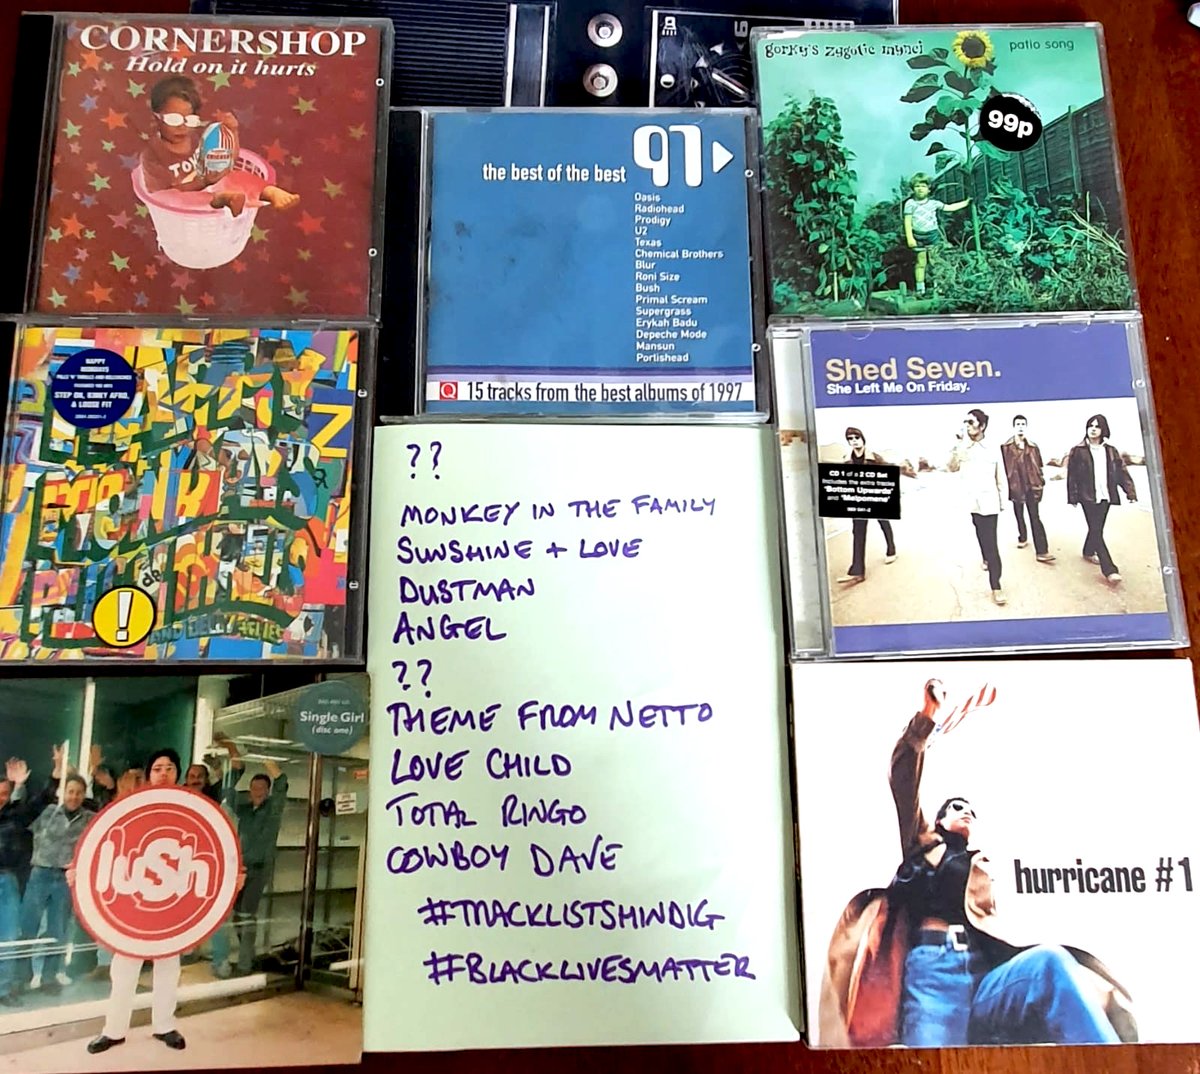 CORNERSHOP
Hold on it hurts
TOY
gorky's zygotic mynci
patio song
99p
the best of the best
97
Oasis
Radiohead
Prodigy
U2
Texas
Chemical Brothers
Blur
Roni Size
Bush
Primal Scream
Supergrass
Erykah Badu
Depeche Mode
Mansun
Portishead
Q 15 tracks from the best albums of 1997
HAPPY
MONDAYS
STEP ON, KINKY AFRO,
& LOOSE FIT
!
Shed Seven.
She Left Me On Friday.
CD 1 of a 2 CD Set
Includes the extra tracks
'Bottom Upwards'
and 'Melpomene'
??
MONKEY IN THE FAMILY
SUNSHINE + LOVE
DUSTMAN
ANGEL
??
THEME FROM NETTO
LOVE CHILD
TOTAL RINGO
COWBOY DAVE
#TRACKLISTSHINDIG
#BLACKLIVESMATTER
Single Girl
(disc one)
lush
hurricane #1